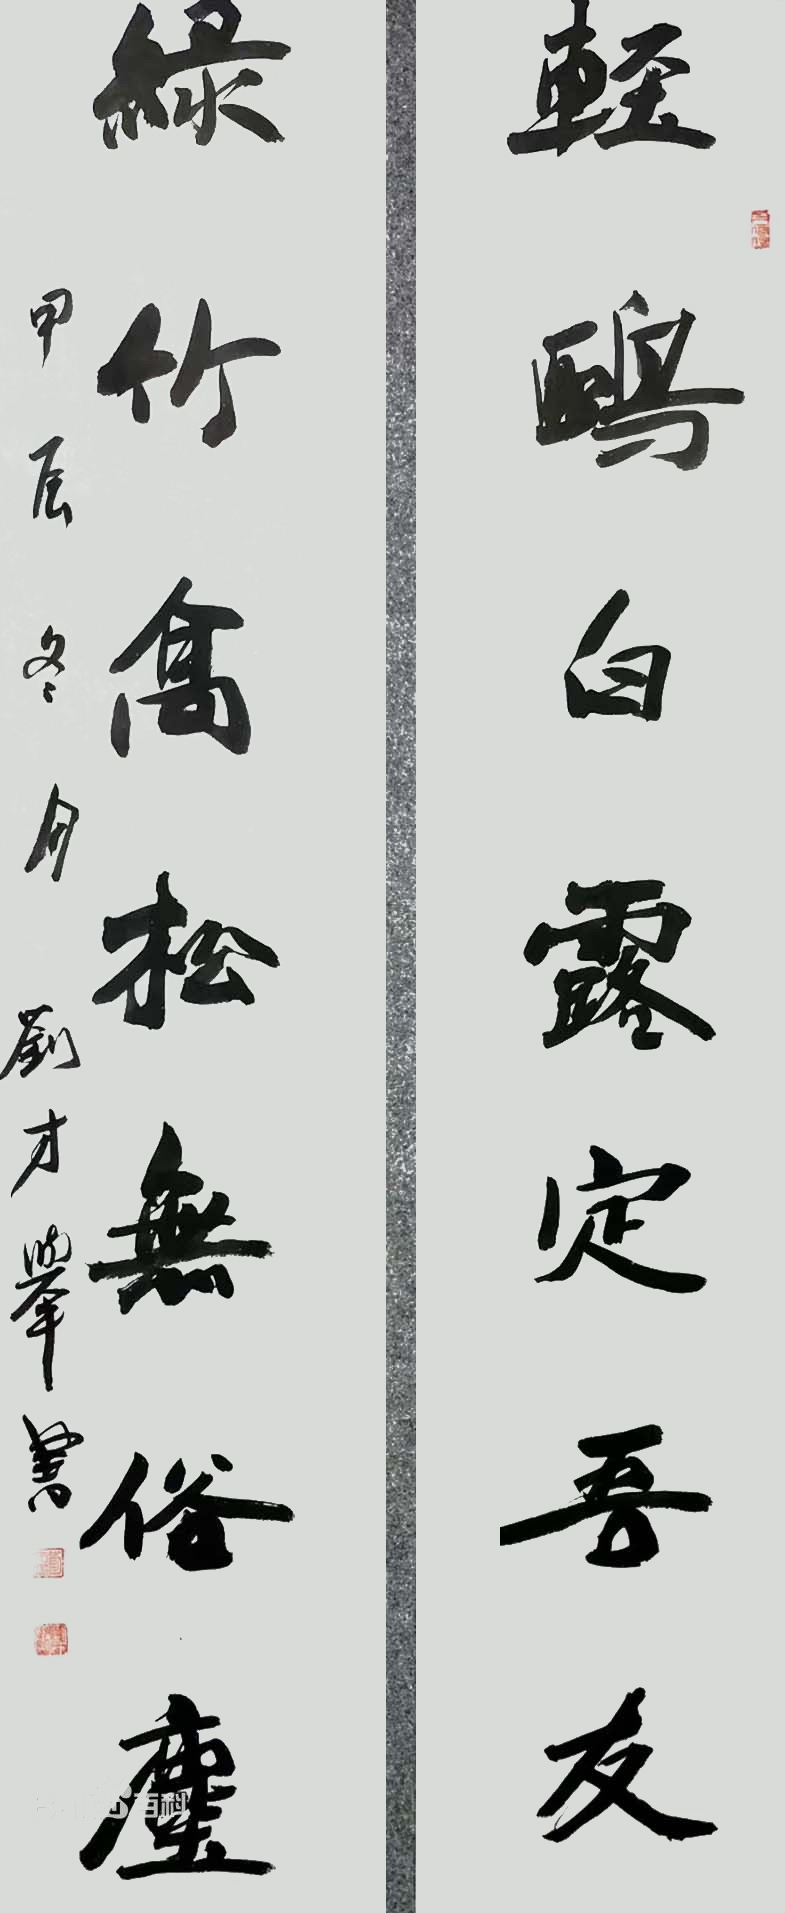 輕鷗白鷺定吾友
綠竹高松無俗塵
甲辰冬月
劉才舉書
百科